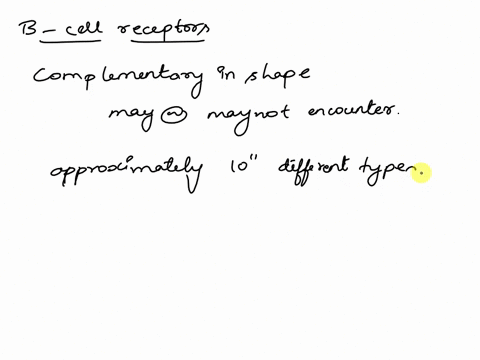 B - cell receptors
Complementary in shape
may or may not encounter.
approximately 10¹¹ different types.